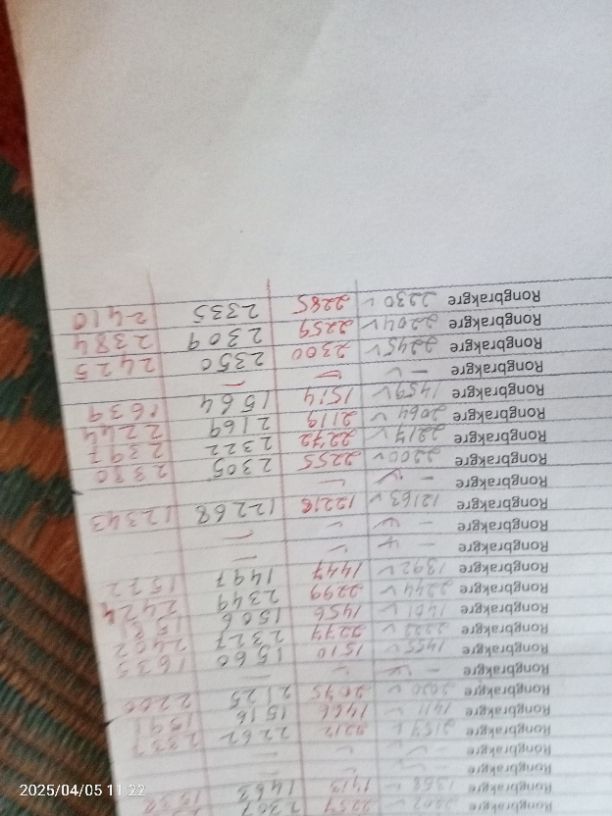 Rongbrakgre 2202 ✓ 2257 2307
Rongbrakgre 1358 ✓ 1413 1463 1538
Rongbrakgre – ✓ – –
Rongbrakgre – ✓ – –
Rongbrakgre 2157 ✓ 2212 2262 2337
Rongbrakgre 1411 ✓ 1466 1516 1591
Rongbrakgre 2020 ✓ 2075 2125 2200
Rongbrakgre – ✓ – –
Rongbrakgre 1455 ✓ 1510 1560 1635
Rongbrakgre 2222 ✓ 2277 2327 2402
Rongbrakgre 1401 ✓ 1456 1506 1581
Rongbrakgre 2244 ✓ 2299 2349 2424
Rongbrakgre 1392 ✓ 1447 1497 1572
Rongbrakgre – ✓ – –
Rongbrakgre – ✓ – –
Rongbrakgre 12163 ✓ 12218 12268 12343
Rongbrakgre – ✓ –
Rongbrakgre 2200 ✓ 2255 2305 2380
Rongbrakgre 2217 ✓ 2272 2322 2397
Rongbrakgre 2064 ✓ 2119 2169 2244
Rongbrakgre 1459 ✓ 1514 1564 1639
Rongbrakgre – ✓ – –
Rongbrakgre 2245 ✓ 2300 2350 2425
Rongbrakgre 2204 ✓ 2259 2309 2384
Rongbrakgre 2230 ✓ 2285 2335 2410
2025/04/05 11:22